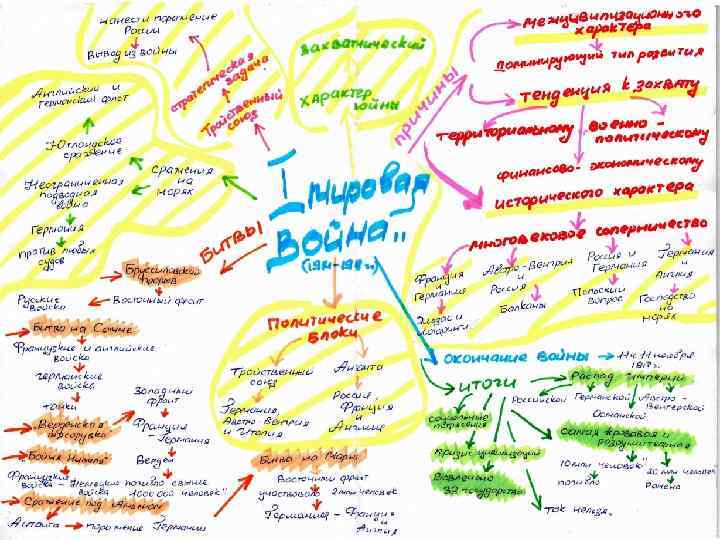 нанести поражение
России
Вывод из войны
стратегическая
задача
Тройственный
союз
захватнический
характер
войны
причины
межцивилизационного
характера
доминирующий тип развития
тенденция к захвату
территориальному
военно -
политическому
финансово - экономическому
исторического характера
многовековое соперничество
Франция
и
Германия
Эльзас и
Лотарингия
Австро-Венгрия
и
Россия
Балканы
Россия и
Германия
Польский
вопрос
Германия
и
Англия
Господство
на
морях
Английский и
германский флот
Ютландское
сражение
Неограниченная
подводная
война
сражения
на
морях
Германия
против любых
судов
I мировая
Война..
БИТВЫ
Брусиловский
прорыв
Русские
войска
Восточный фронт
Битва на Сомме
Французские и английские
войска
германские
войска
танки
Западный
фронт
Верденская
мясорубка
Франция
- Германия
Верден
Политические
блоки
Тройственный
союз
Германия,
Австро-Венгрия
и Италия
Антанта
Россия,
Франция
и
Англия
Битва на Марне
Восточный фронт
участвовало 2 млн человек
Германия - Франция
и
Англия
Французские
войска - Немецкие
войска
погибло свыше
Антанта
поражение Германии
окончание войны
11 ноября
ИТОГИ
социальные
потрясения
кризис цивилизации
Вовлечено
государства
Распад империй
Российской
Германской
Австро -
Венгерской
Османской.
самая кровавая и
разрушительная
10 млн человек
погибло
20 млн человек
ранено
так нельзя.